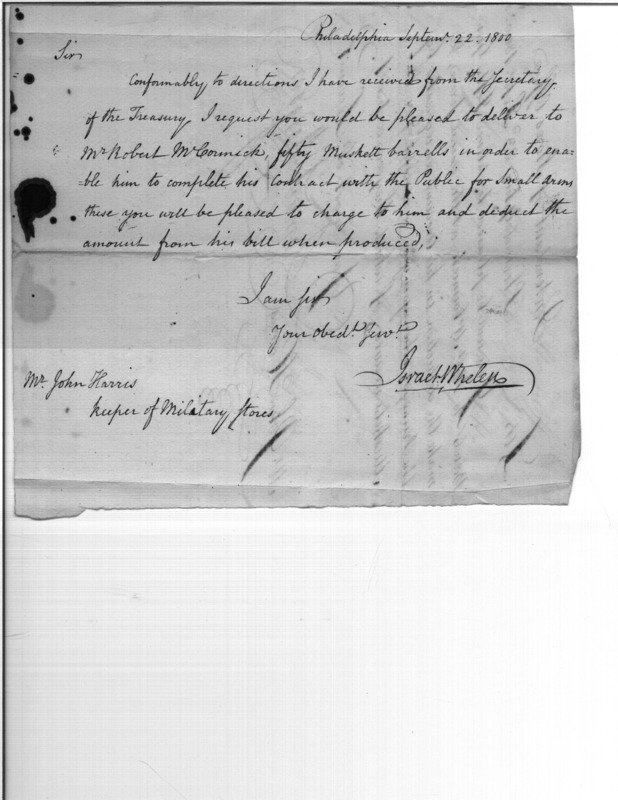 Philadelphia Septemr. 22. 1800
Sir
Conformably, to directions I have received from the Secretary
of the Treasury, I request you would be pleased to deliver to
Mr Robert McCormick, fifty Muskett barrells in order to ena=
=ble him to complete his Contract with the Public for Small Arms
these you will be pleased to charge to him and deduct the
amount from his bill when produced,
I am sir
Your Obedt. Servt.
Israel Whelen
Mr. John Harris
keeper of Military Stores